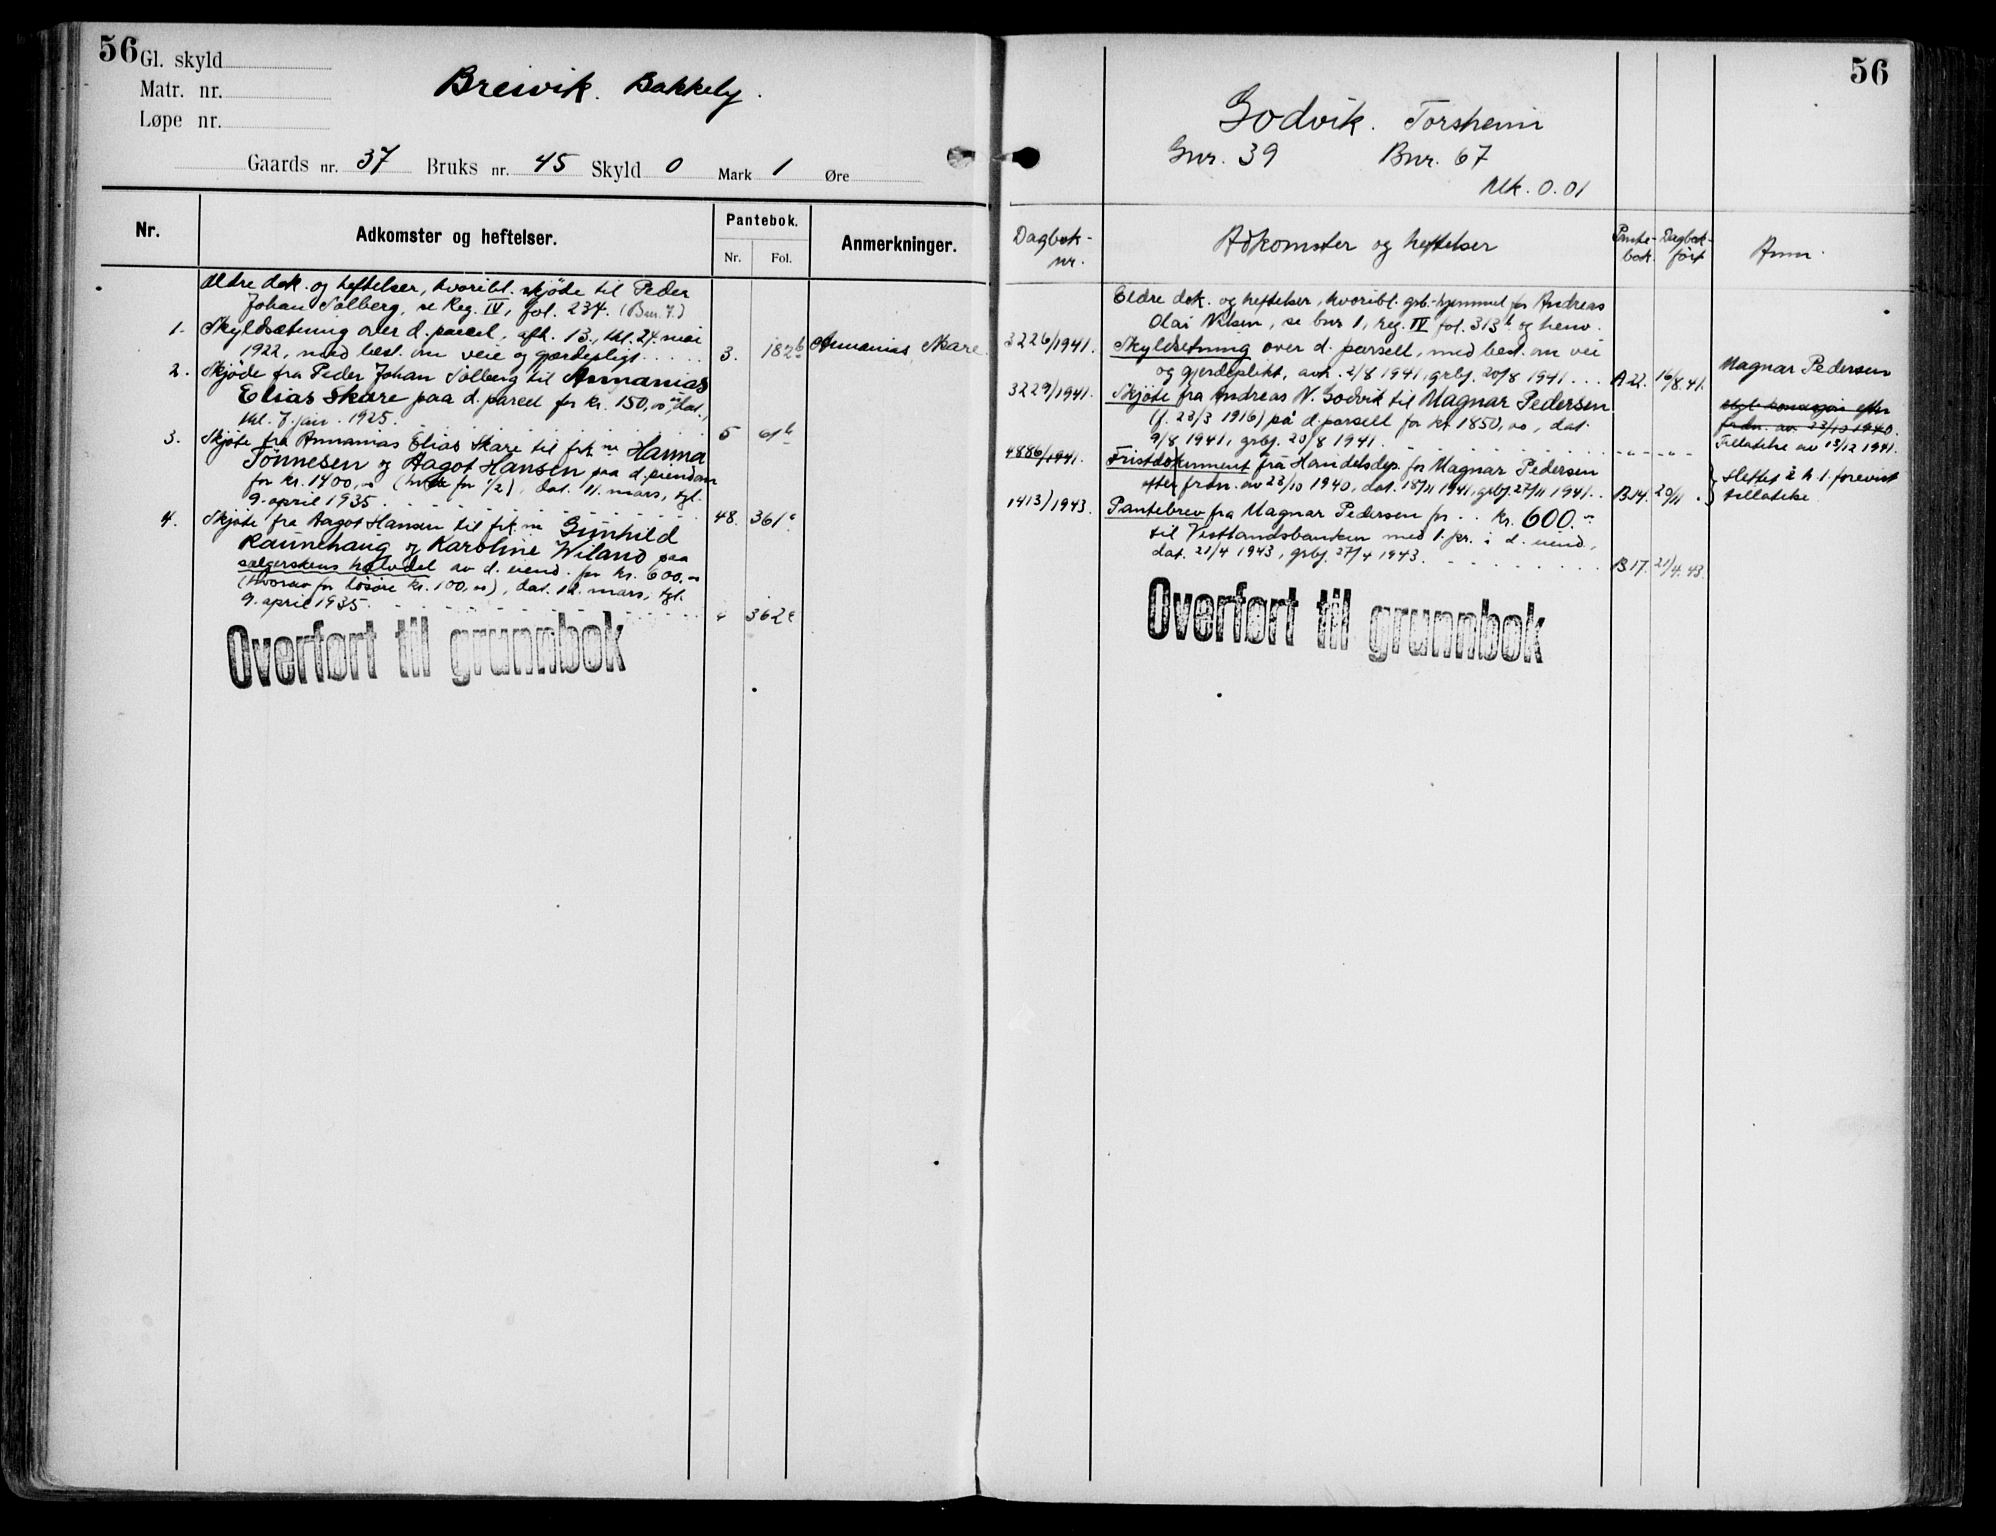 56
Gl. skyld
Matr. nr.
Løpe nr.
Breivik. Bakkely.
Gaards nr. 37 Bruks nr. 45 Skyld 0 Mark 1 Øre
Nr.
Adkomster og heftelser.
Pantebok.
Nr. Fol.
Anmerkninger.
Ældre dok. og heftelser, hvoribl. skjøde til Peder
Johan Solberg, se Reg. IV, fol. 234. (Bnr. 7.)
1. Skyldsætning over d. parcel, afh. 13., thl. 27. mai
1922, med best. om veie og gjærdepligt . . . . . 3. 182b Annanias Skare.
2. Skjøde fra Peder Johan Solberg til Annanias
Elias Skare paa d. parcel for kr. 150,00, dat.,
thl. 7. jan. 1925. 5 61b
3. Skjøte fra Annanias Elias Skare til frk.ne Hanna
Tönnesen og Aagot Hansen paa d. eiendom
for kr. 1400,00 (hver for 1/2), dat. 11. mars, tgl.
9. april 1935. 48. 361a
4. Skjøte fra Aagot Hansen til frk.ne Gunhild
Raunehaug og Karoline Wiland paa
sælgerskens halvdel av d. eiend. for kr. 600,00
(hvorav for løsøre kr. 100,00), dat. 12. mars, tgl.
9. april 1935. " 362a
Overført til grunnbok
56
Godvik. Torsheim
Gnr. 39 Bnr. 67
Mk. 0.01
Dagbok-
nr.
Adkomster og heftelser
Pante-
bok.
Dagbok-
ført
Anm.
Eldre dok. og heftelser, hvoribl. grb.-hjemmel for Andreas
Olai Nilsen, se bnr 1, reg. IV fol. 313b og henv.
3226/1941. Skyldsetning over d. parsell, med best. om vei
og gjerdeplikt, avh. 2/8 1941, grbf. 20/8 1941 . . . A 22. 16/8.41. Magnar Pedersen
3229/1941. Skjøte fra Andreas N. Godvik til Magnar Pedersen
(f. 23/3 1916) på d. parsell for kr. 1850,00, dat.
9/8 1941, grbf. 20/8 1941. - " - " - " -
efter
frdn. av 23/10 1940.
Tillatelse av 13/12 1941.
4886/1941. Fristdokument frå Handelsdep. for Magnar Pedersen
efter frdn. av 23/10 1940, dat. 18/11 1941, grbf. 27/11 1941. . B14. 20/11 . Slettet i h. t. forevist
tillatelse
1413/1943. Pantebrev fra Magnar Pedersen for . . kr. 600.-
til Vestlandsbanken med 1. pr. i d. eiend.,
dat. 21/4 1943, grbf. 27/4 1943. B17. 21/4.43.
Overført til grunnbok